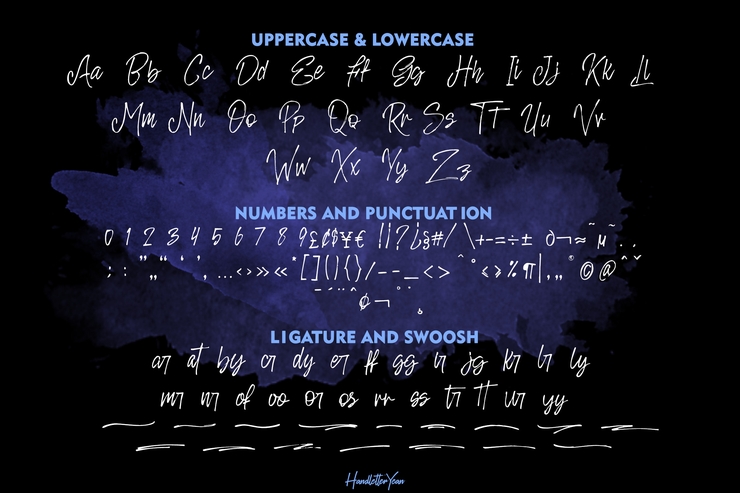 UPPERCASE & LOWERCASE
Aa Bb Cc Dd Ee Ff Gg Hh Ii Jj Kk Ll
Mm Nn Oo Pp Qq Rr Ss Tt Uu Vv
Ww Xx Yy Zz
NUMBERS AND PUNCTUATION
0 1 2 3 4 5 6 7 8 9 £ ¢ $ ¥ € ! ¡ ? ¿ § # / \ + - = ÷ ± ∂ ¬ ≈ ~ µ
; : ” „ “ ‘ ’ , … ‹ › » « * [ ] ( ) { } / – - _ < > ^ ° ≤ ≥ % ¶ | © @
LIGATURE AND SWOOSH
ar at by cr dy er ff gg ir jg kr lr ly
mr nr of oo or os rr ss tr tt ur yy
HandletterYean